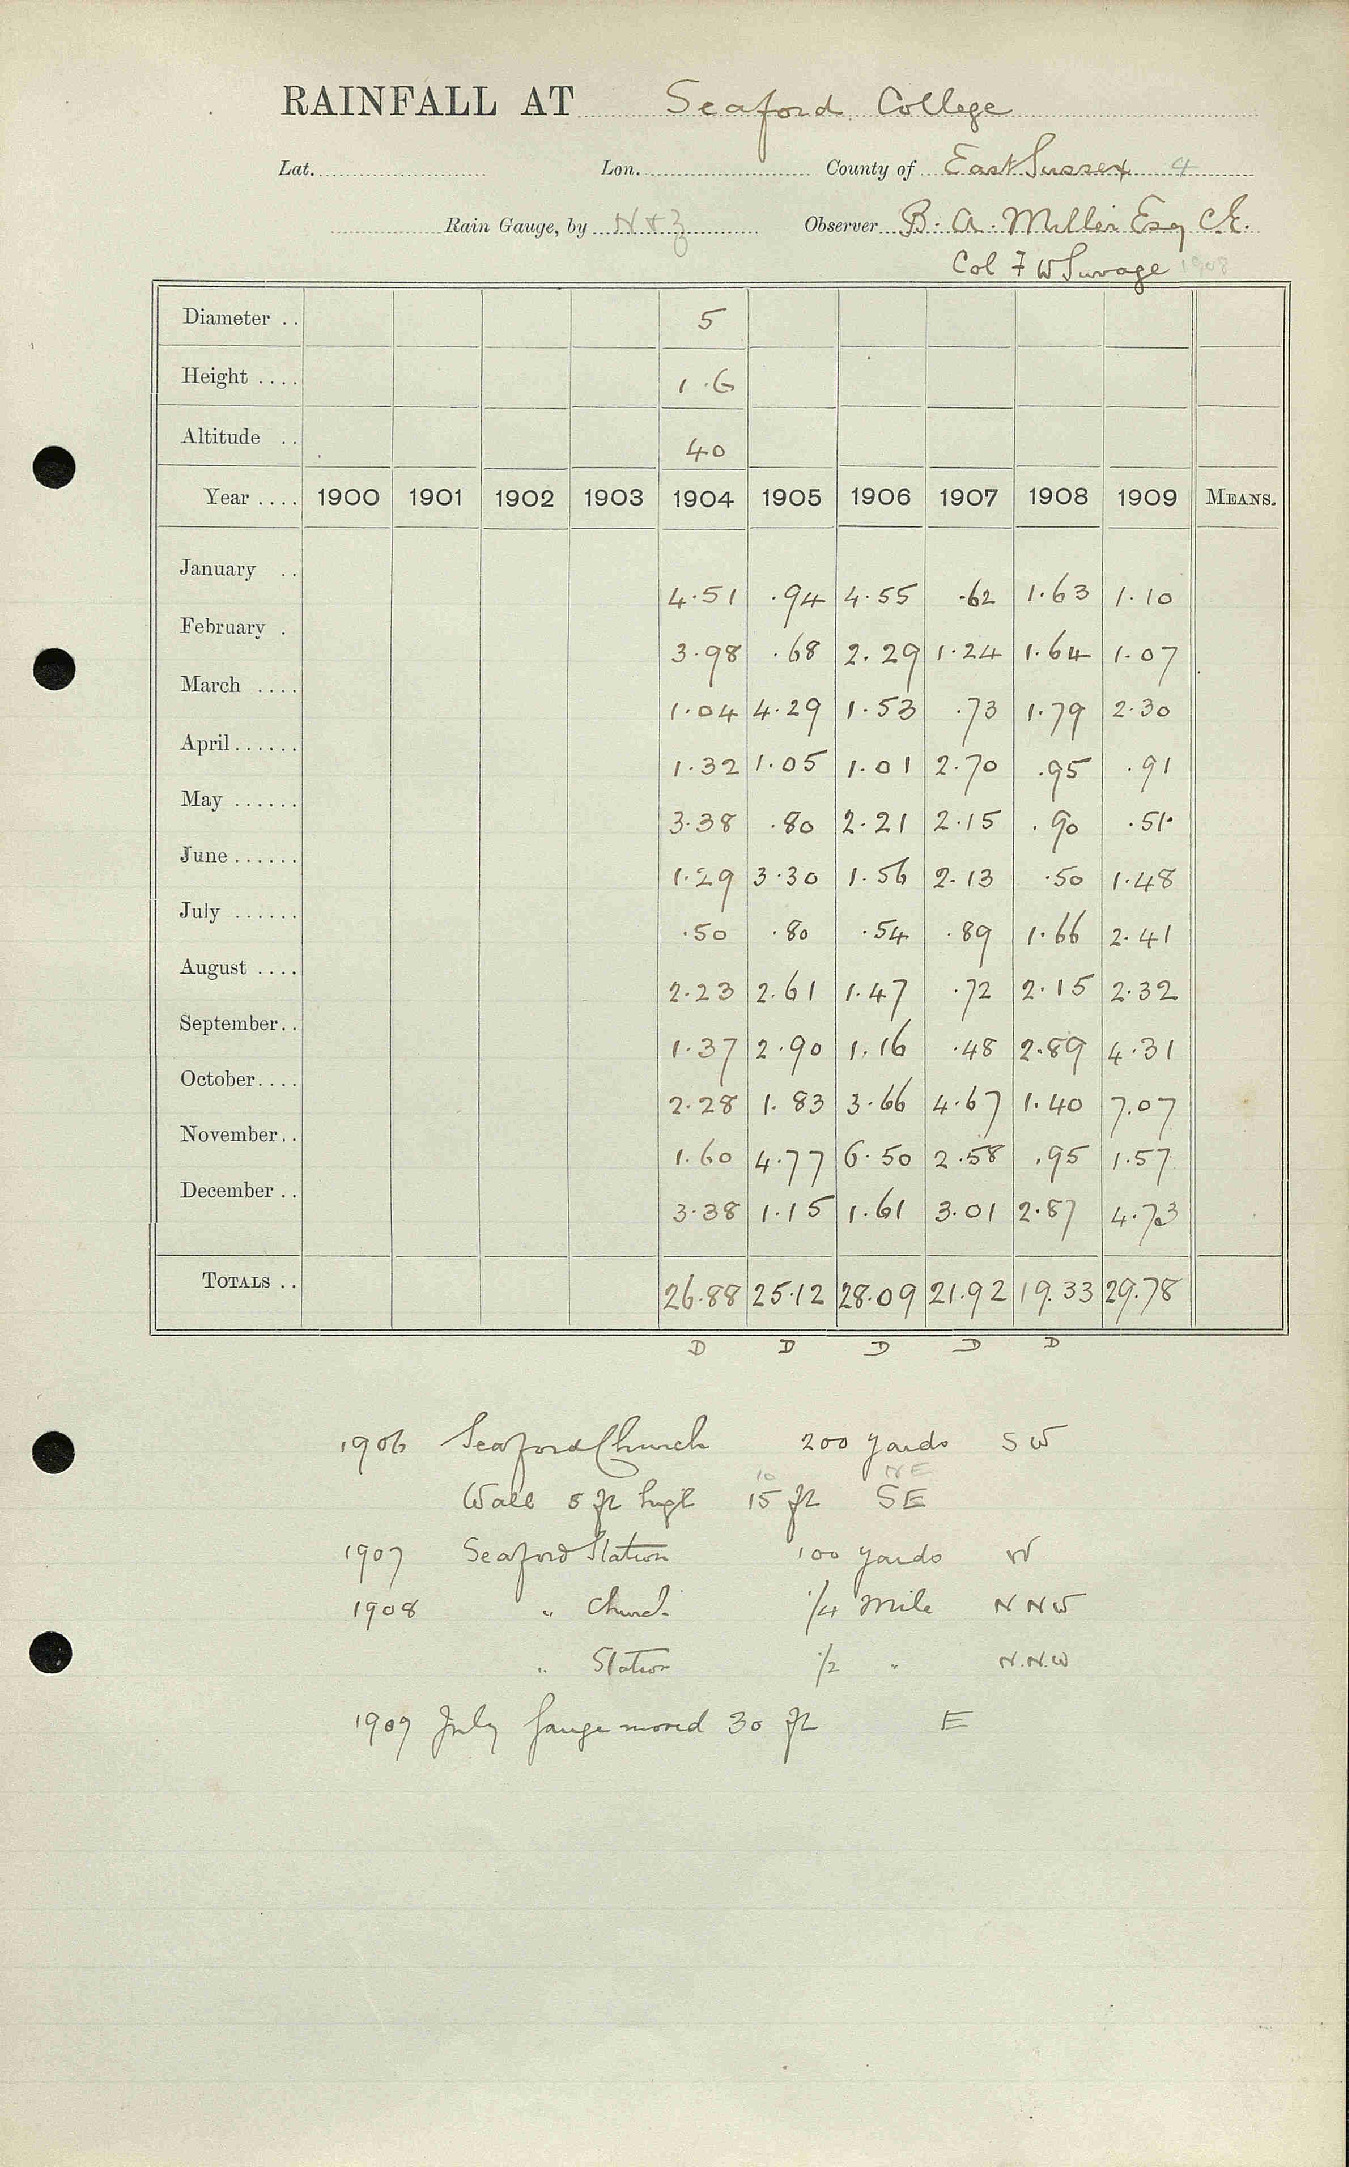 RAINFALL AT Seaford College
Lat. Lon. County of East Sussex 4
Rain Gauge, by N & Z Observer B. A. Miller Esq C.E.
Col F W Savage 1908
Diameter .. 5
Height .... 1.6
Altitude .. 40
Year .... 1900 1901 1902 1903 1904 1905 1906 1907 1908 1909 MEANS.
January .. 4.51 .94 4.55 .62 1.63 1.10
February . 3.98 .68 2.29 1.24 1.64 1.07
March .... 1.04 4.29 1.53 .73 1.79 2.30
April ...... 1.32 1.05 1.01 2.70 .95 .91
May ...... 3.38 .80 2.21 2.15 .90 .51
June ...... 1.29 3.30 1.56 2.13 .50 1.48
July ...... .50 .80 .54 .89 1.66 2.41
August .... 2.23 2.61 1.47 .72 2.15 2.32
September.. 1.37 2.90 1.16 .48 2.89 4.31
October.... 2.28 1.83 3.66 4.67 1.40 7.07
November.. 1.60 4.77 6.50 2.58 .95 1.57
December .. 3.38 1.15 1.61 3.01 2.87 4.73
TOTALS .. 26.88 25.12 28.09 21.92 19.33 29.78
D D D D D
1906 Seaford Church 200 yards SW
10 NE
Wall 8 ft high 15 ft SE
1907 Seaford Station 100 yards W
1908 " Church 1/4 Mile NNW
" Station 1/2 " N.N.W
1909 July Gauge moved 30 ft E